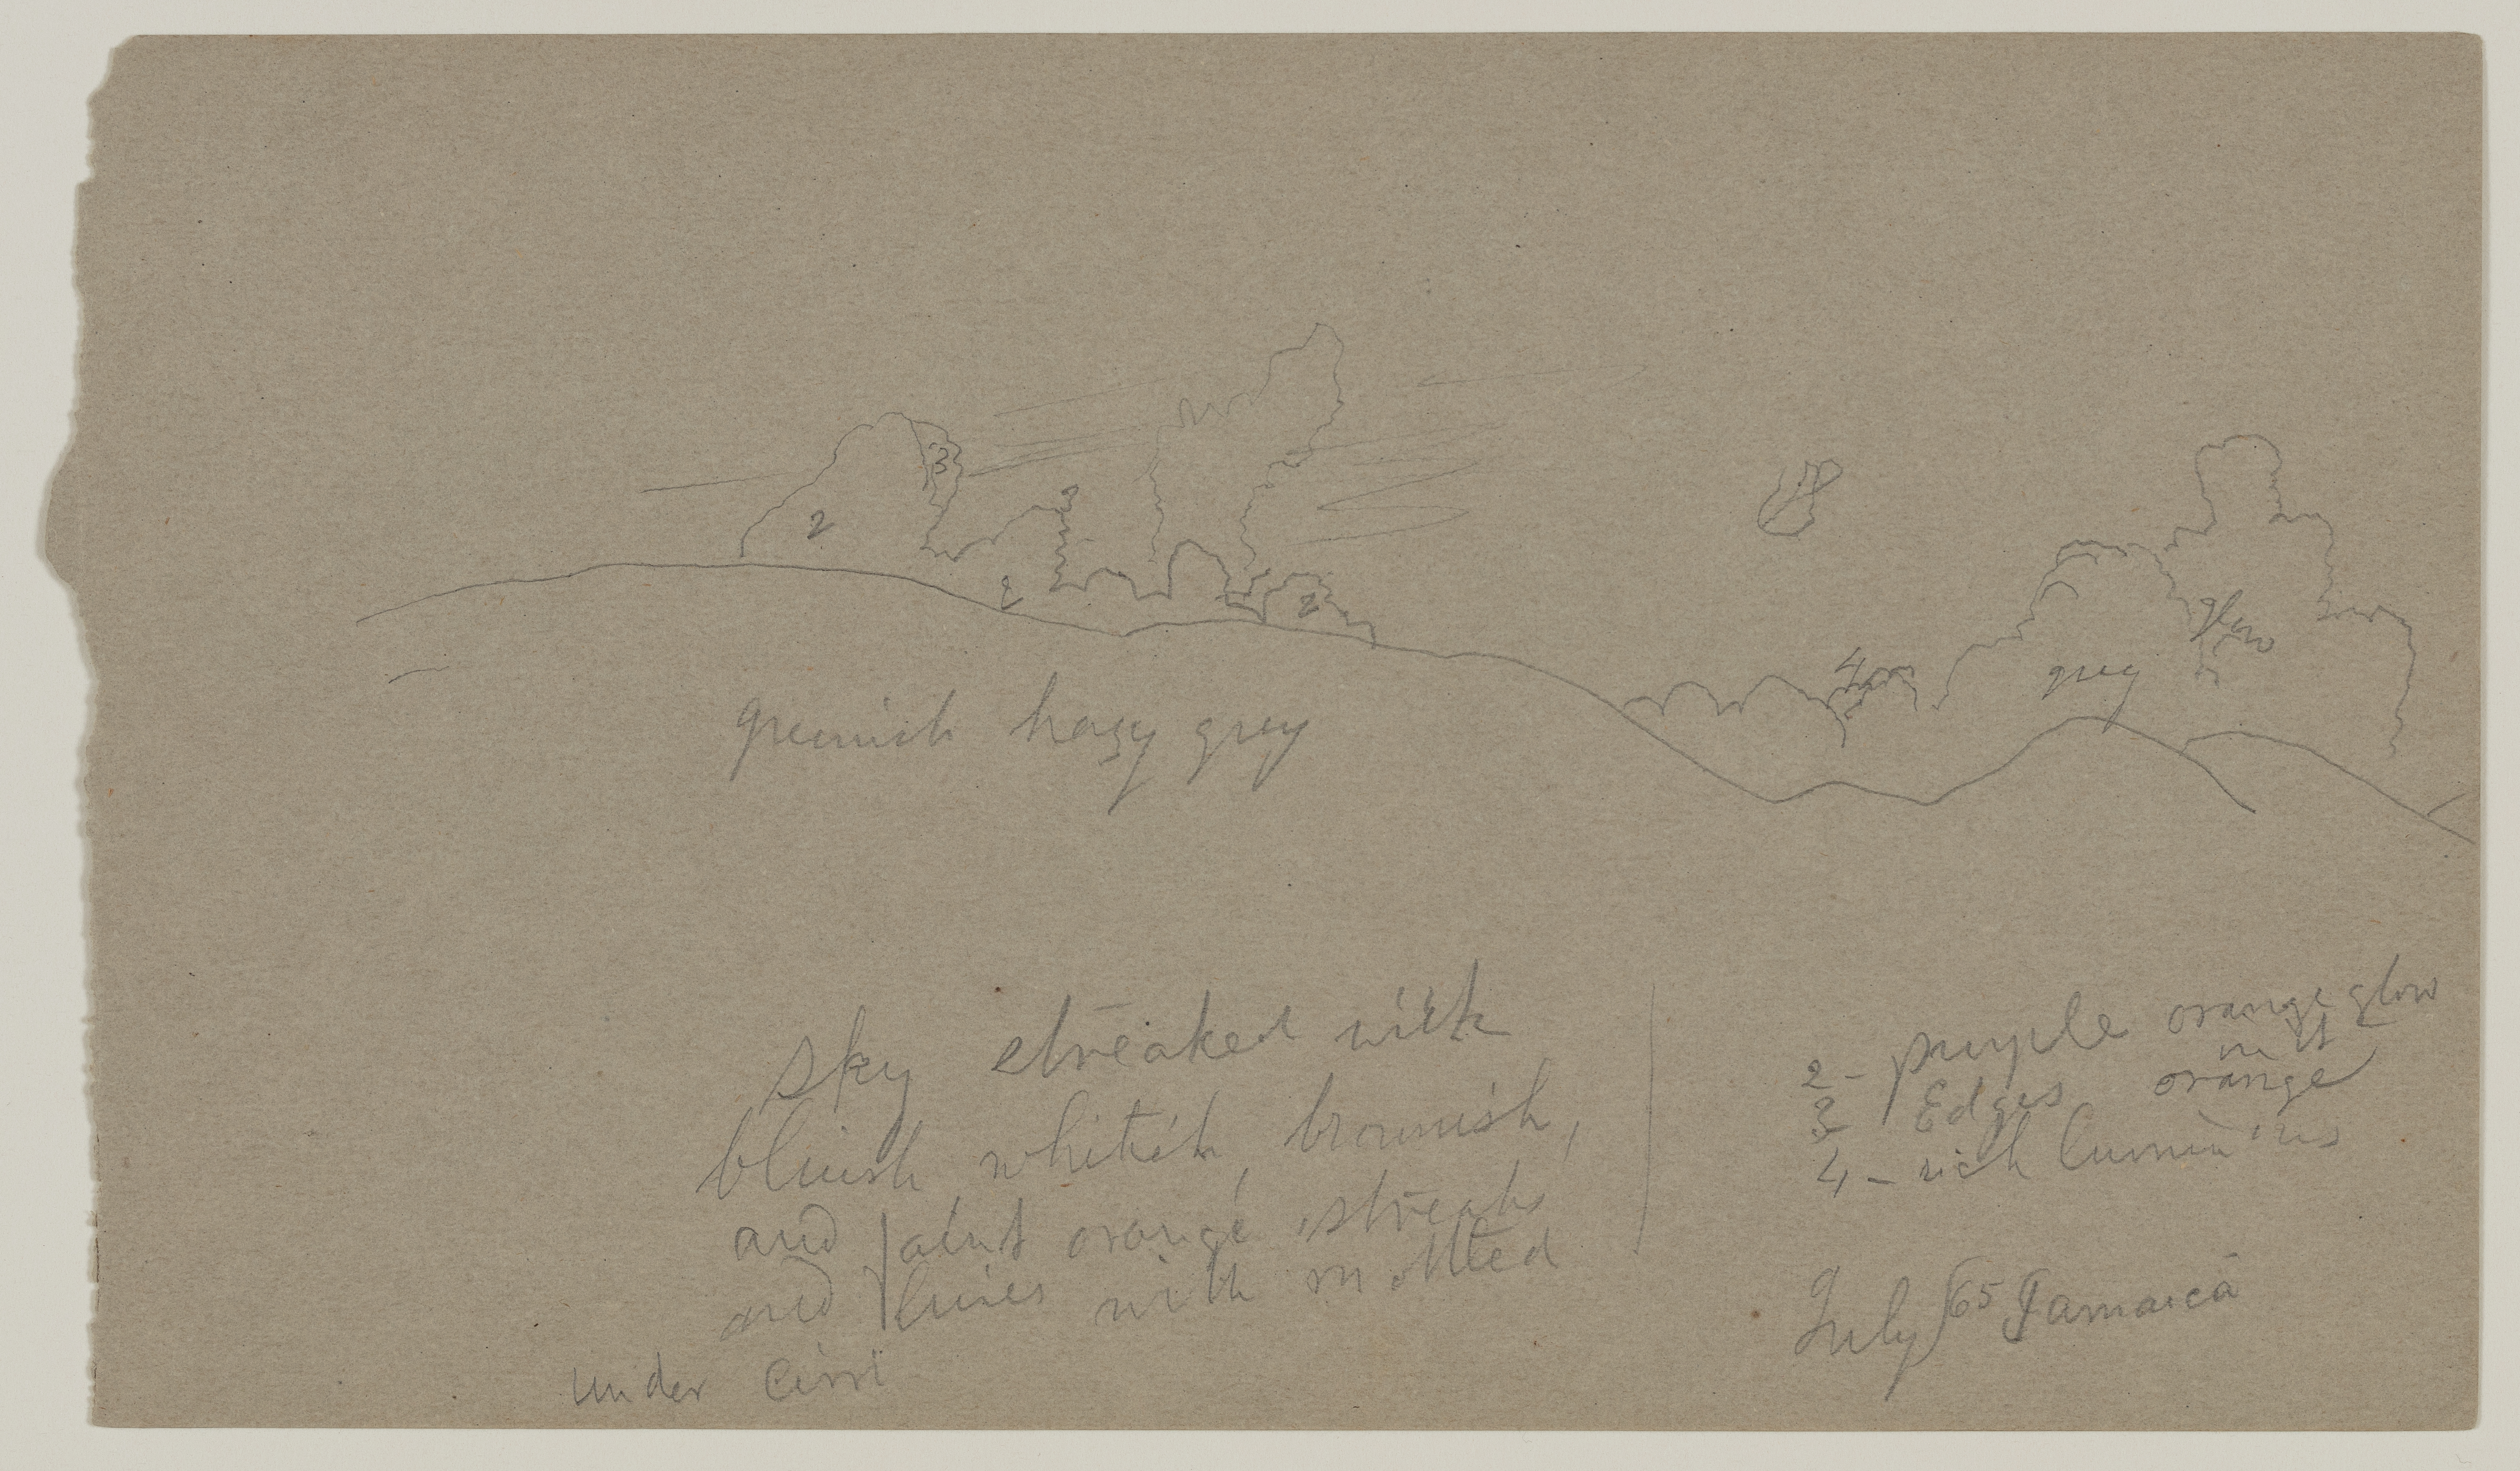 3
2
2
2
2
4
glow
grey
greenish hazy grey
sky streaked with
bluish whitish, brownish,
and faint orange streaks
and lines with mottled
under cirri
2 - purple orange glow
in it
3 Edges orange
4 - rich luminous
July /65 Jamaica